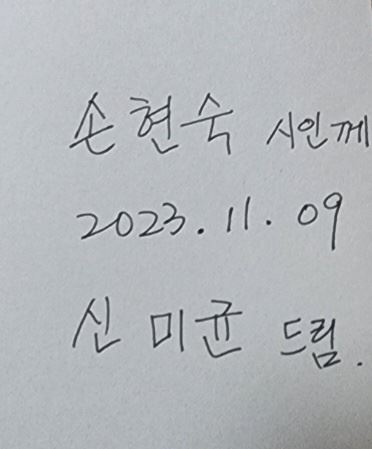 손현숙 시인께
2023. 11. 09
신미균 드림.